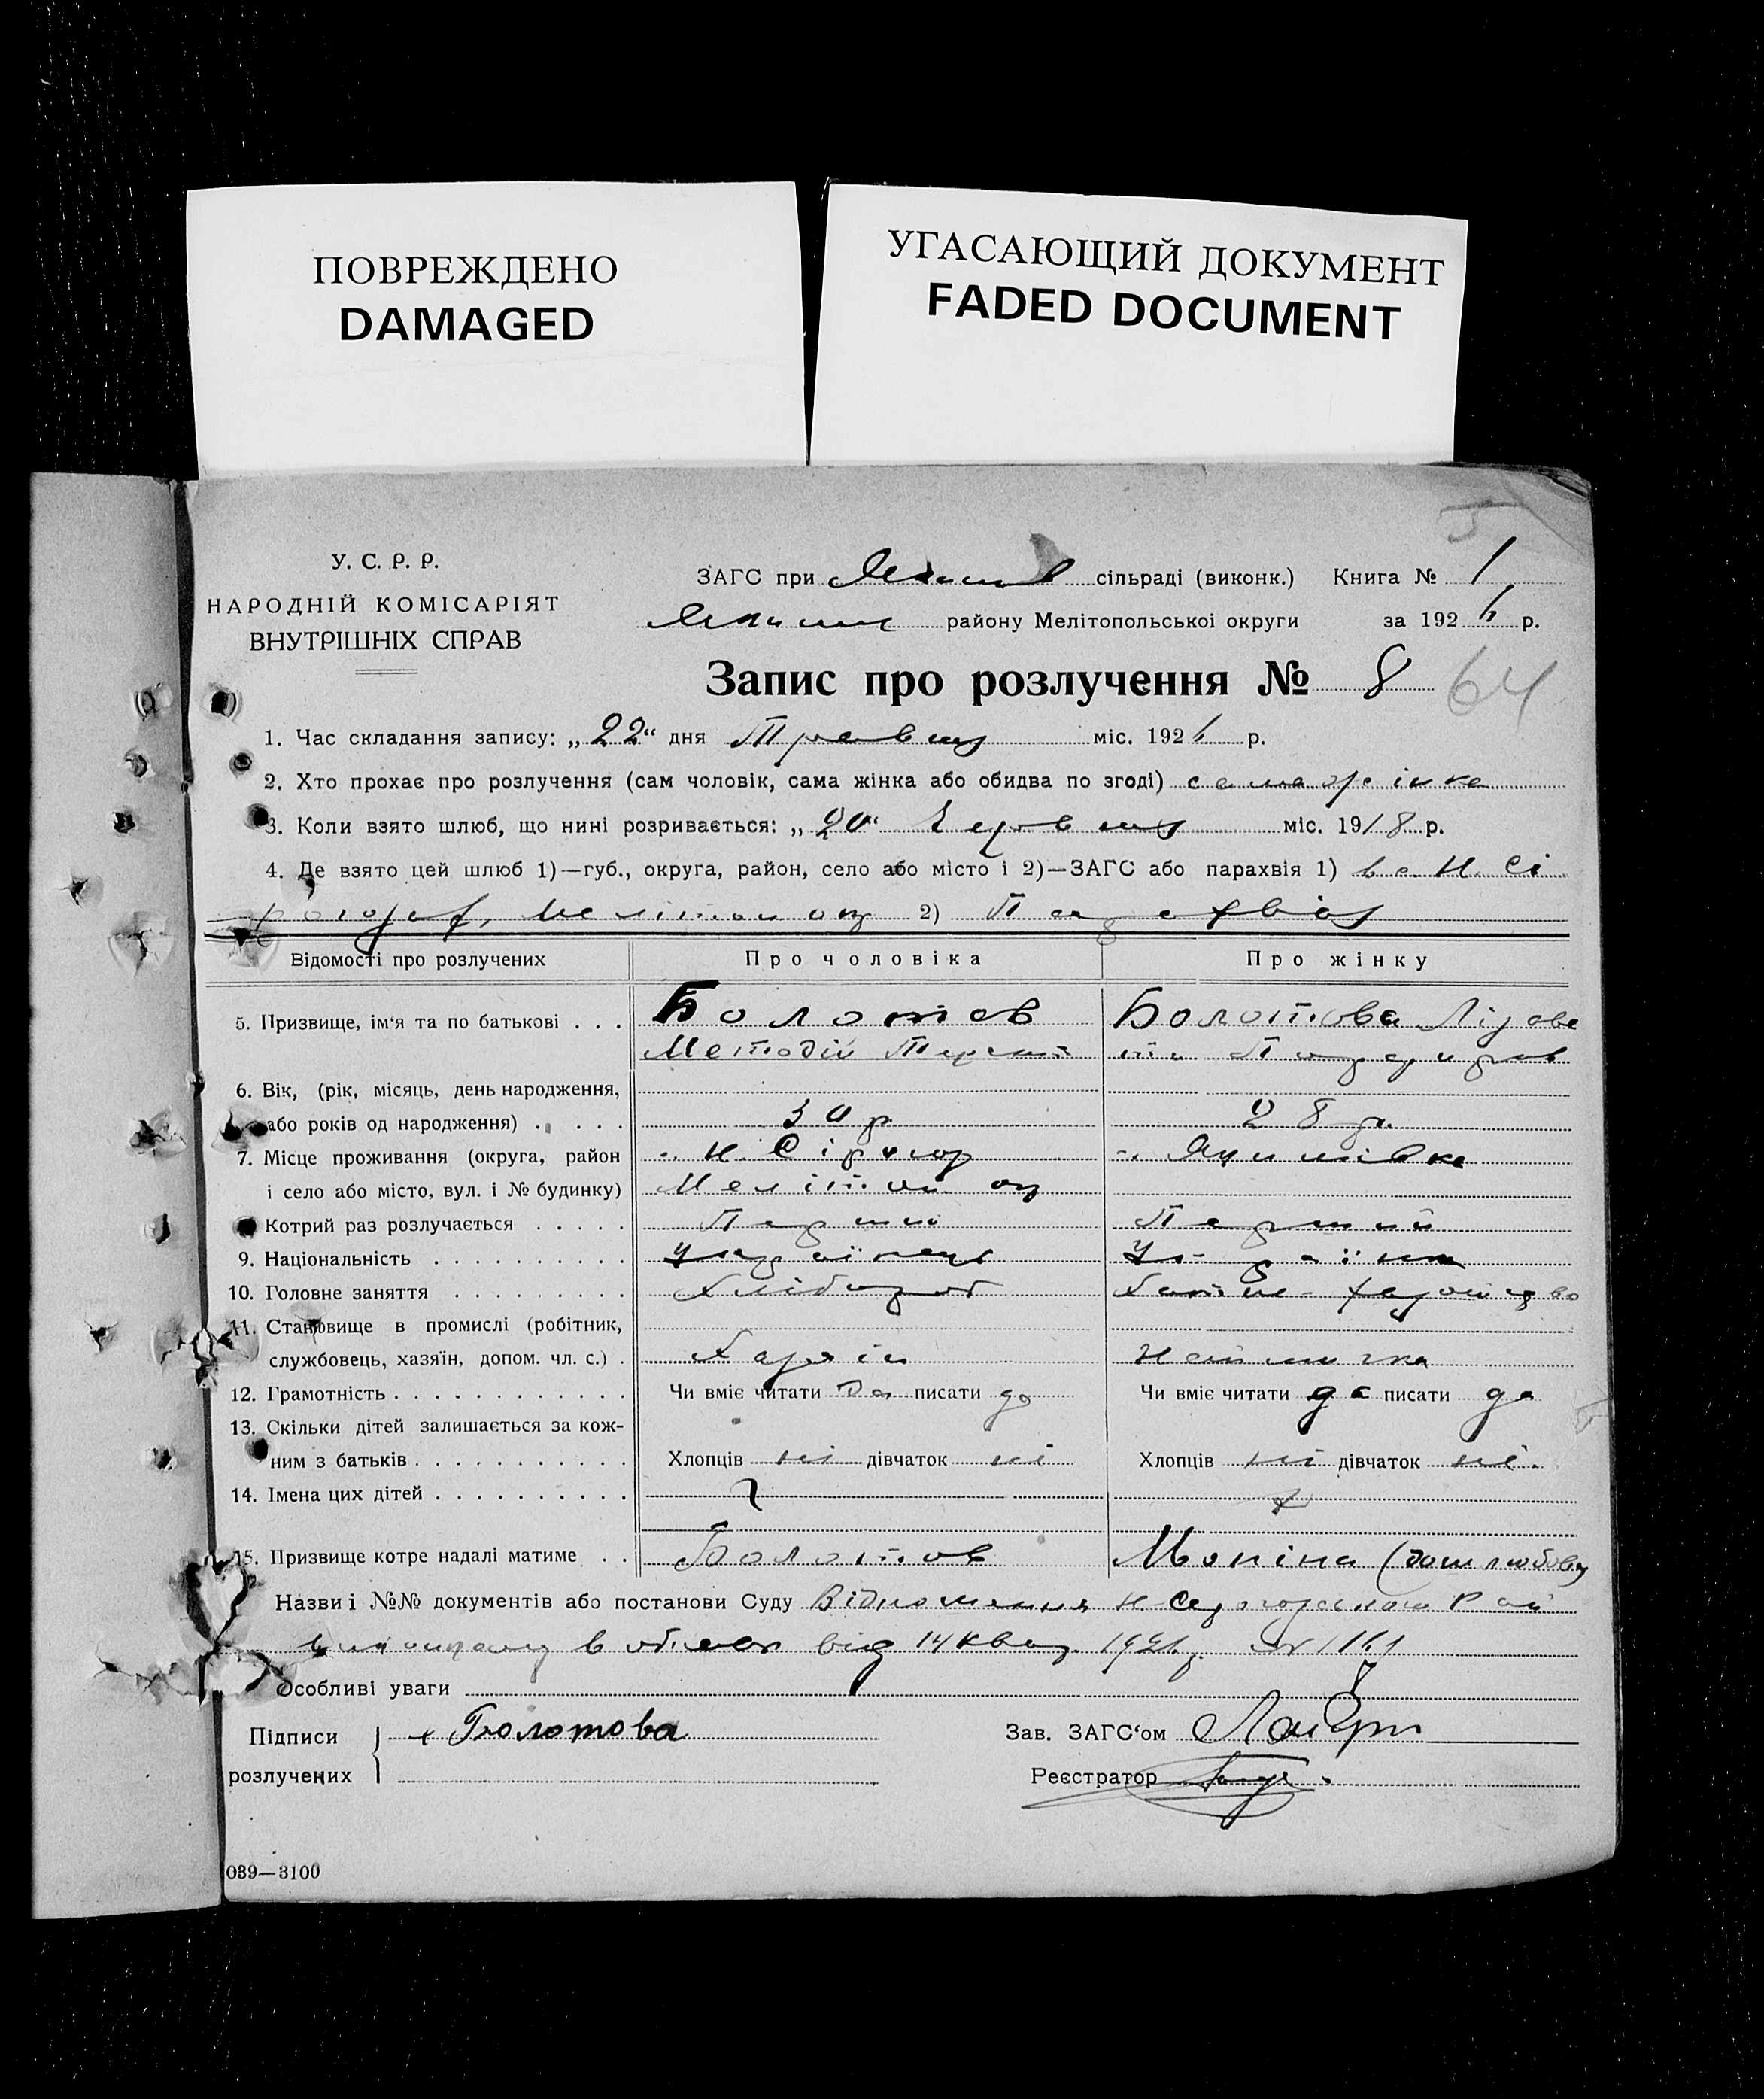 ПОВРЕЖДЕНО
DAMAGED
УГАСАЮЩИЙ ДОКУМЕНТ
FADED DOCUMENT
У. С. Р. Р.
НАРОДНІЙ КОМІСАРІЯТ
ВНУТРІШНІХ СПРАВ
ЗАГС при сільраді (виконк.) Книга № 1
району Мелітопольської округи за 1926 р.
Запис про розлучення № 8
64
1. Час складання запису: „22“ дня Травня міс. 1926 р.
2. Хто прохає про розлучення (сам чоловік, сама жінка або обидва по згоді) сама жінка
3. Коли взято шлюб, що нині розривається: „20“ Червня міс. 1918 р.
4. Де взято цей шлюб 1)—губ., округа, район, село або місто і 2)—ЗАГС або парахвія 1) в с. Н. Сі
2) Парахвія
Відомості про розлучених Про чоловіка Про жінку
5. Призвище, ім‘я та по батькові . . . Болотов Болотова Лізаве
Методій
6. Вік, (рік, місяць, день народження,
або років од народження) . . . . . 30 р. 28 р.
7. Місце проживання (округа, район с. Н. Сірогоз с. Якимівка
і село або місто, вул. і № будинку) Мелітоп. ок
Котрий раз розлучається . . . . . Перший Перший
9. Національність . . . . . . . . . . Українець Українка
10. Головне заняття . . . . . . . . . Хлібороб
11. Становище в промислі (робітник,
службовець, хазяїн, допом. чл. с.) . Хазяін Наймичка
12. Грамотність . . . . . . . . . . . . Чи вміє читати да писати да Чи вміє читати да писати да
13. Скільки дітей залишається за кож-
ним з батьків . . . . . . . . . . . Хлопців ні дівчаток ні Хлопців ні дівчаток ні.
14. Імена цих дітей . . . . . . . . . .
15. Призвище котре надалі матиме . . Болотов Моніна (дошлюбова
Назви і №№ документів або постанови Суду Відношення Н-Сірогозького Рай
від 14 квіт.
Особливі уваги
Підписи Болотова Зав. ЗАГС‘ом
розлучених Реєстратор
039—3100